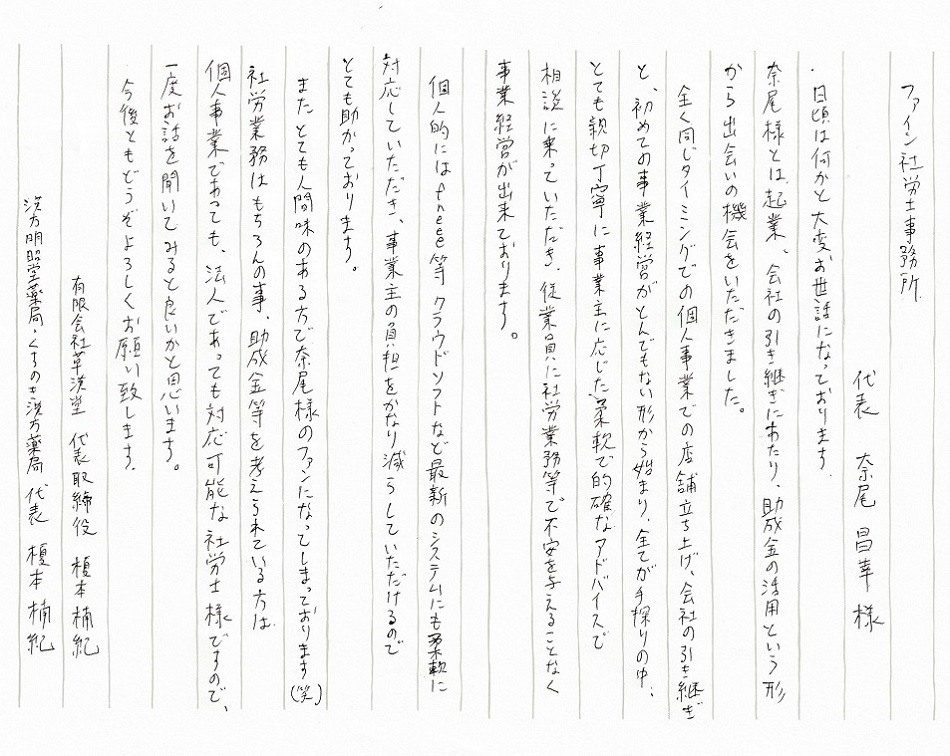 ファイン社労士事務所
代表 奈尾 昌幸 様
日頃は何かと大変お世話になっております。
奈尾様とは、起業、会社の引き継ぎにあたり、助成金の活用という形
から出会いの機会をいただきました。
全く同じタイミングでの個人事業での店舗立ち上げ、会社の引き継ぎ
と、初めての事業経営がとんでもない形から始まり、全てが手探りの中、
とても親切丁寧に事業主に応じた柔軟で的確なアドバイスで
相談に乗っていただき、従業員に社労業務等で不安を与えることなく
事業経営が出来ております。
個人的にはfreee等クラウドソフトなど最新のシステムにも柔軟に
対応していただき、事業主の負担をかなり減らしていただけるので
とても助かっております。
またとても人間味のある方で奈尾様のファンになってしまっております(笑)
社労業務はもちろんの事、助成金等を考えられている方は
個人事業であっても、法人であっても対応可能な社労士様ですので、
一度お話を聞いてみると良いかと思います。
今後ともどうぞよろしくお願い致します。
有限会社草漢堂 代表取締役 榎本 楠紀
漢方明昭堂薬局・くすのき漢方薬局 代表 榎本 楠紀